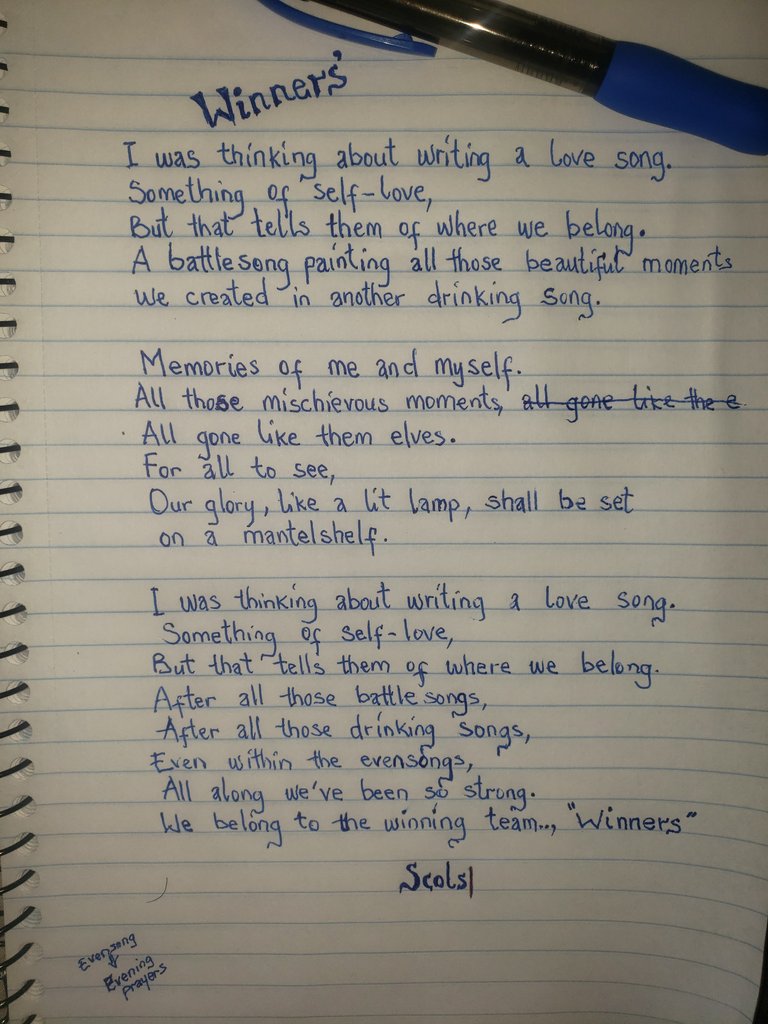 Winners'
I was thinking about writing a love song.
Something of self-love,
But that tells them of where we belong.
A battlesong painting all those beautiful moments
We created in another drinking song.
Memories of me and myself.
All those mischievous moments, all gone like the e
All gone like them elves.
For all to see,
Our glory, like a lit lamp, shall be set
on a mantelshelf.
I was thinking about writing a love song.
Something of self-love,
But that tells them of where we belong.
After all those battle songs,
After all those drinking songs,
Even within the evensongs,
All along we've been so strong.
We belong to the winning team..., "Winners"
Scols|
Evensong
Evening
prayers